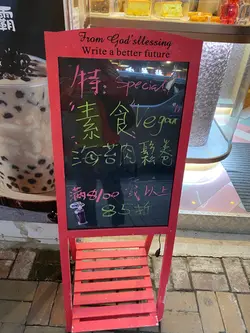 霸
From God'sBlessing
Write a better future
特: Special
"素食 Vegan"
海苔肉鬆卷
滿$100 或以上
85折